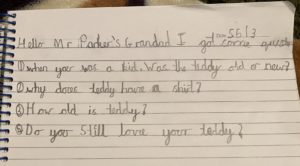 Hello Mr Parker's Grandad I got some
① when your was a kid. Was the teddy old or new?
② why does teddy have a shirt?
③ How old is teddy?
④ Do your still love your teddy?